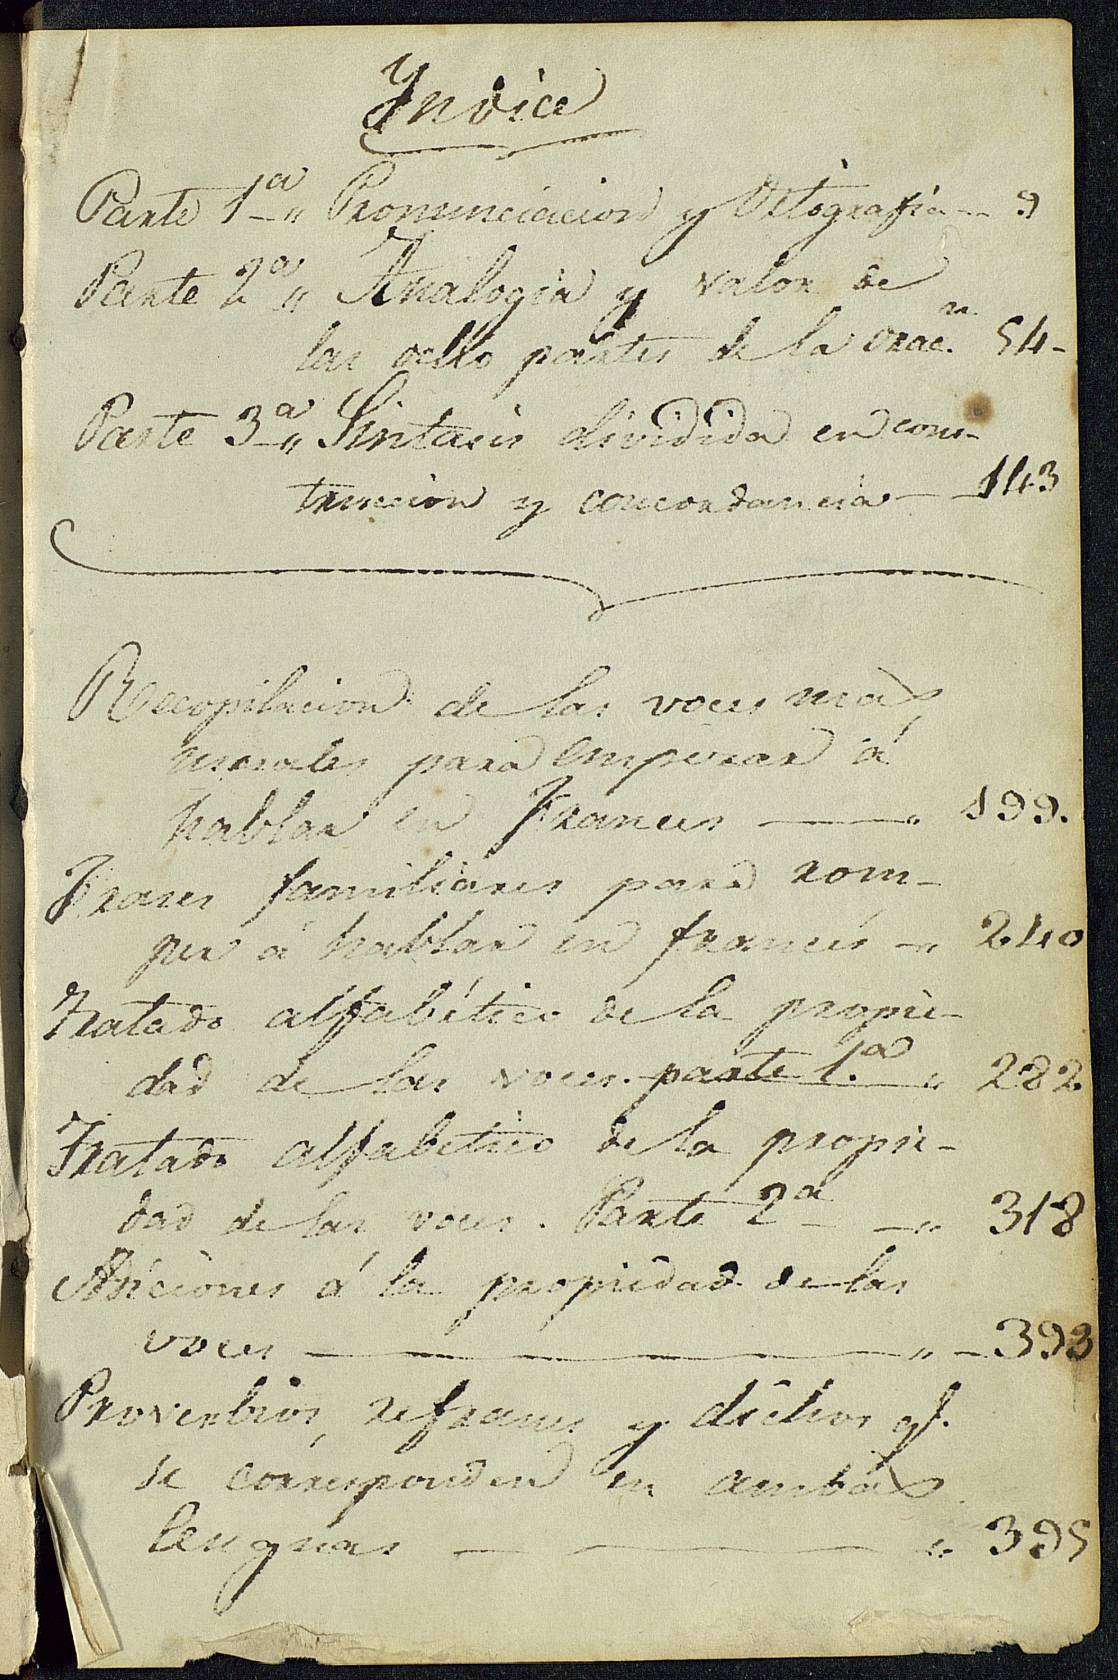 Yndice
Parte 1ª „ Pronunciacion y Ortografia -- 9
Parte 2ª „ Analogia y valor de
las ocho partes de la orac.n 54-
Parte 3ª „ Sintaxis dividida en cons-
truccion y concordancia -- 143
Recopilacion de las voces mas
usuales para empezar á
hablar en Frances -- „ 199.
Frases familiares para rom-
per á hablar en francés -„ 240
Tratado alfabético de la propie-
dad de las voces. parte 1.ª „ 282
Tratado alfabetico de la propie-
dad de las voces. Parte 2ª -„ 318
Adiciones á la propiedad de las
voces -- „ - 393
Proverbios, refranes y dichos q.
se corresponden en ambas
lenguas -- „ 395